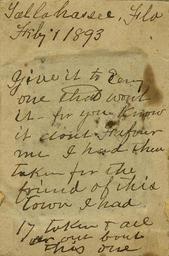 Tallahassee, Fla
Feby 1 1893
Give it to any
one that wont
it. for you know
it dont flatter
me I had them
taken for the
friend of this
town I had
17 taken & all
are out but
this one